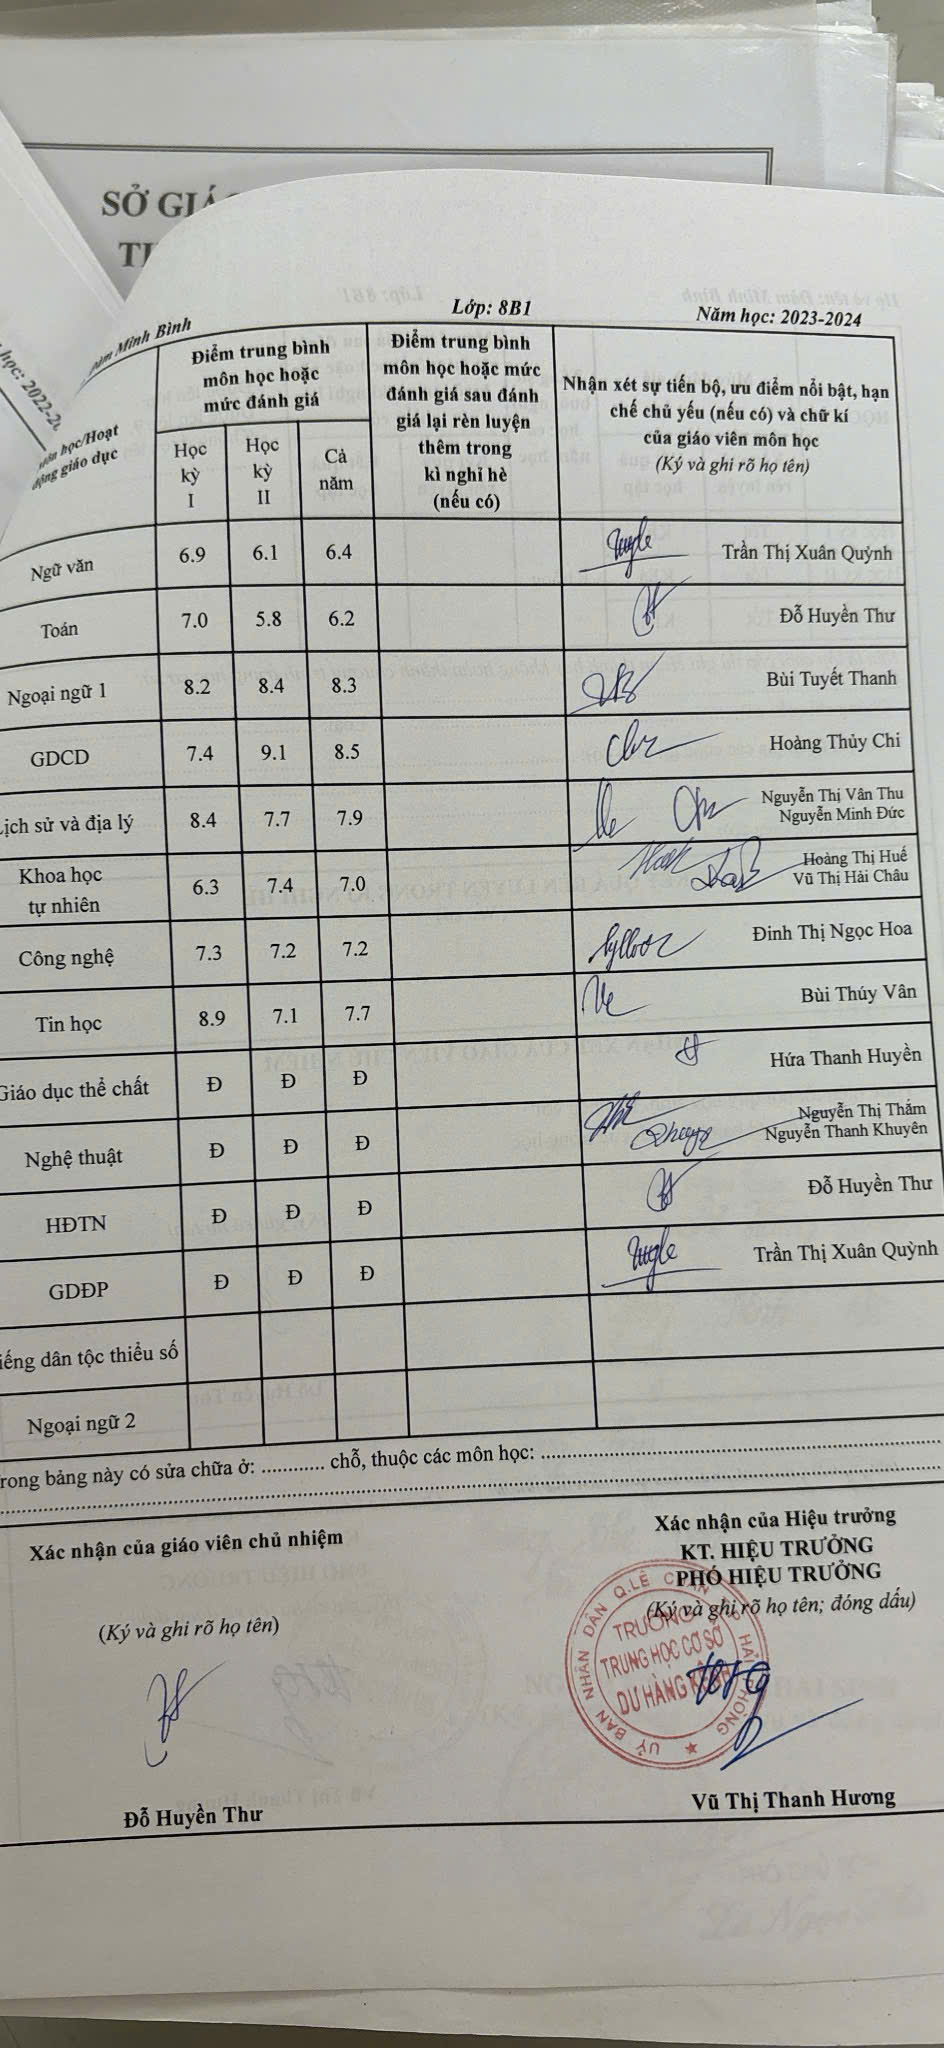 SỞ GIÁ
học: 2022-20
Minh Bình
Lớp: 8B1
Năm học: 2023-2024
học/Hoạt
động giáo dục
Điểm trung bình
môn học hoặc
mức đánh giá
Học
kỳ
I
Học
kỳ
II
Cả
năm
Điểm trung bình
môn học hoặc mức
đánh giá sau đánh
giá lại rèn luyện
thêm trong
kì nghỉ hè
(nếu có)
Nhận xét sự tiến bộ, ưu điểm nổi bật, hạn
chế chủ yếu (nếu có) và chữ kí
của giáo viên môn học
(Ký và ghi rõ họ tên)
Ngữ văn 6.9 6.1 6.4 Trần Thị Xuân Quỳnh
Toán 7.0 5.8 6.2 Đỗ Huyền Thư
Ngoại ngữ 1 8.2 8.4 8.3 Bùi Tuyết Thanh
GDCD 7.4 9.1 8.5 Hoàng Thủy Chi
Lịch sử và địa lý 8.4 7.7 7.9 Nguyễn Thị Vân Thu
Nguyễn Minh Đức
Khoa học
tự nhiên 6.3 7.4 7.0 Hoàng Thị Huế
Vũ Thị Hải Châu
Công nghệ 7.3 7.2 7.2 Đinh Thị Ngọc Hoa
Tin học 8.9 7.1 7.7 Bùi Thúy Vân
Giáo dục thể chất Đ Đ Đ Hứa Thanh Huyền
Nghệ thuật Đ Đ Đ Nguyễn Thị Thắm
Nguyễn Thanh Khuyên
HĐTN Đ Đ Đ Đỗ Huyền Thư
GDĐP Đ Đ Đ Trần Thị Xuân Quỳnh
iếng dân tộc thiểu số
Ngoại ngữ 2
rong bảng này có sửa chữa ở: ............ chỗ, thuộc các môn học: ............
Xác nhận của giáo viên chủ nhiệm
(Ký và ghi rõ họ tên)
Đỗ Huyền Thư
Xác nhận của Hiệu trưởng
KT. HIỆU TRƯỞNG
PHÓ HIỆU TRƯỞNG
(Ký và ghi rõ họ tên; đóng dấu)
ỦY BAN NHÂN DÂN Q.LÊ CHÂN TP HẢI PHÒNG
TRƯỜNG
TRUNG HỌC CƠ SỞ
DƯ HÀNG KÊNH
Vũ Thị Thanh Hương